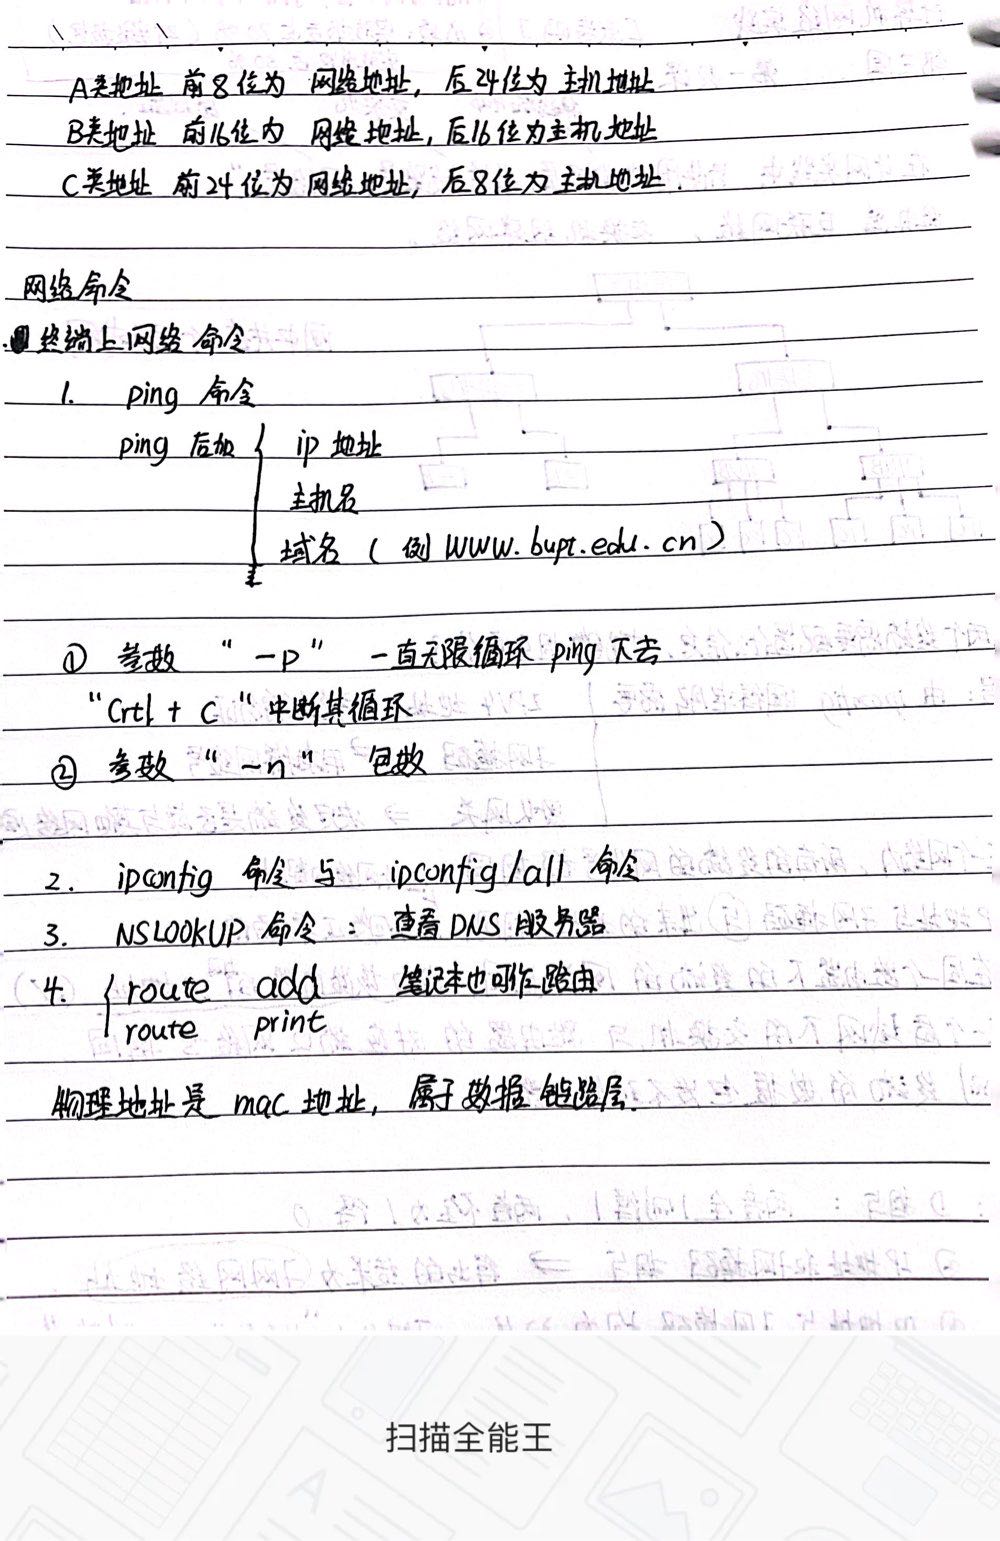 A类地址 前8位为 网络地址，后24位为 主机地址
B类地址 前16位为 网络地址，后16位为主机地址
C类地址 前24位为 网络地址，后8位为 主机地址.
网络命令
终端上网络命令
1. ping 命令
ping 后加 { ip 地址
主机名
域名 ( 例 WWW.bupt.edu.cn )
① 参数 “-p” 一直无限循环 ping 下去.
“Crtl + C” 中断其循环
② 参数 “-n” 包数
2. ipconfig 命令 与 ipconfig/all 命令
3. NSLOOKUP 命令：查看 DNS 服务器
4. { route add 笔记本也可作路由
route print
物理地址是 mac 地址，属于数据链路层.
扫描全能王